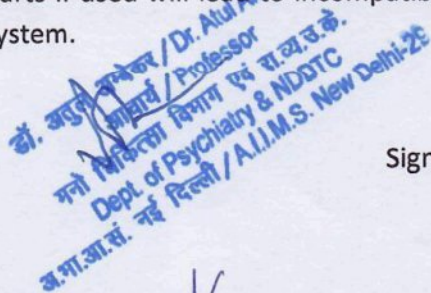 if used will lead to
ystem.
डॉ. अतुल अम्बेकर / Dr. Atul
आचार्य / Professor
मनो चिकित्सा विभाग एवं रा.व्य.उ.के.
Dept. of Psychiatry & NDDTC
अ.भा.आ.सं. नई दिल्ली / A.I.I.M.S. New Delhi-29
Sign